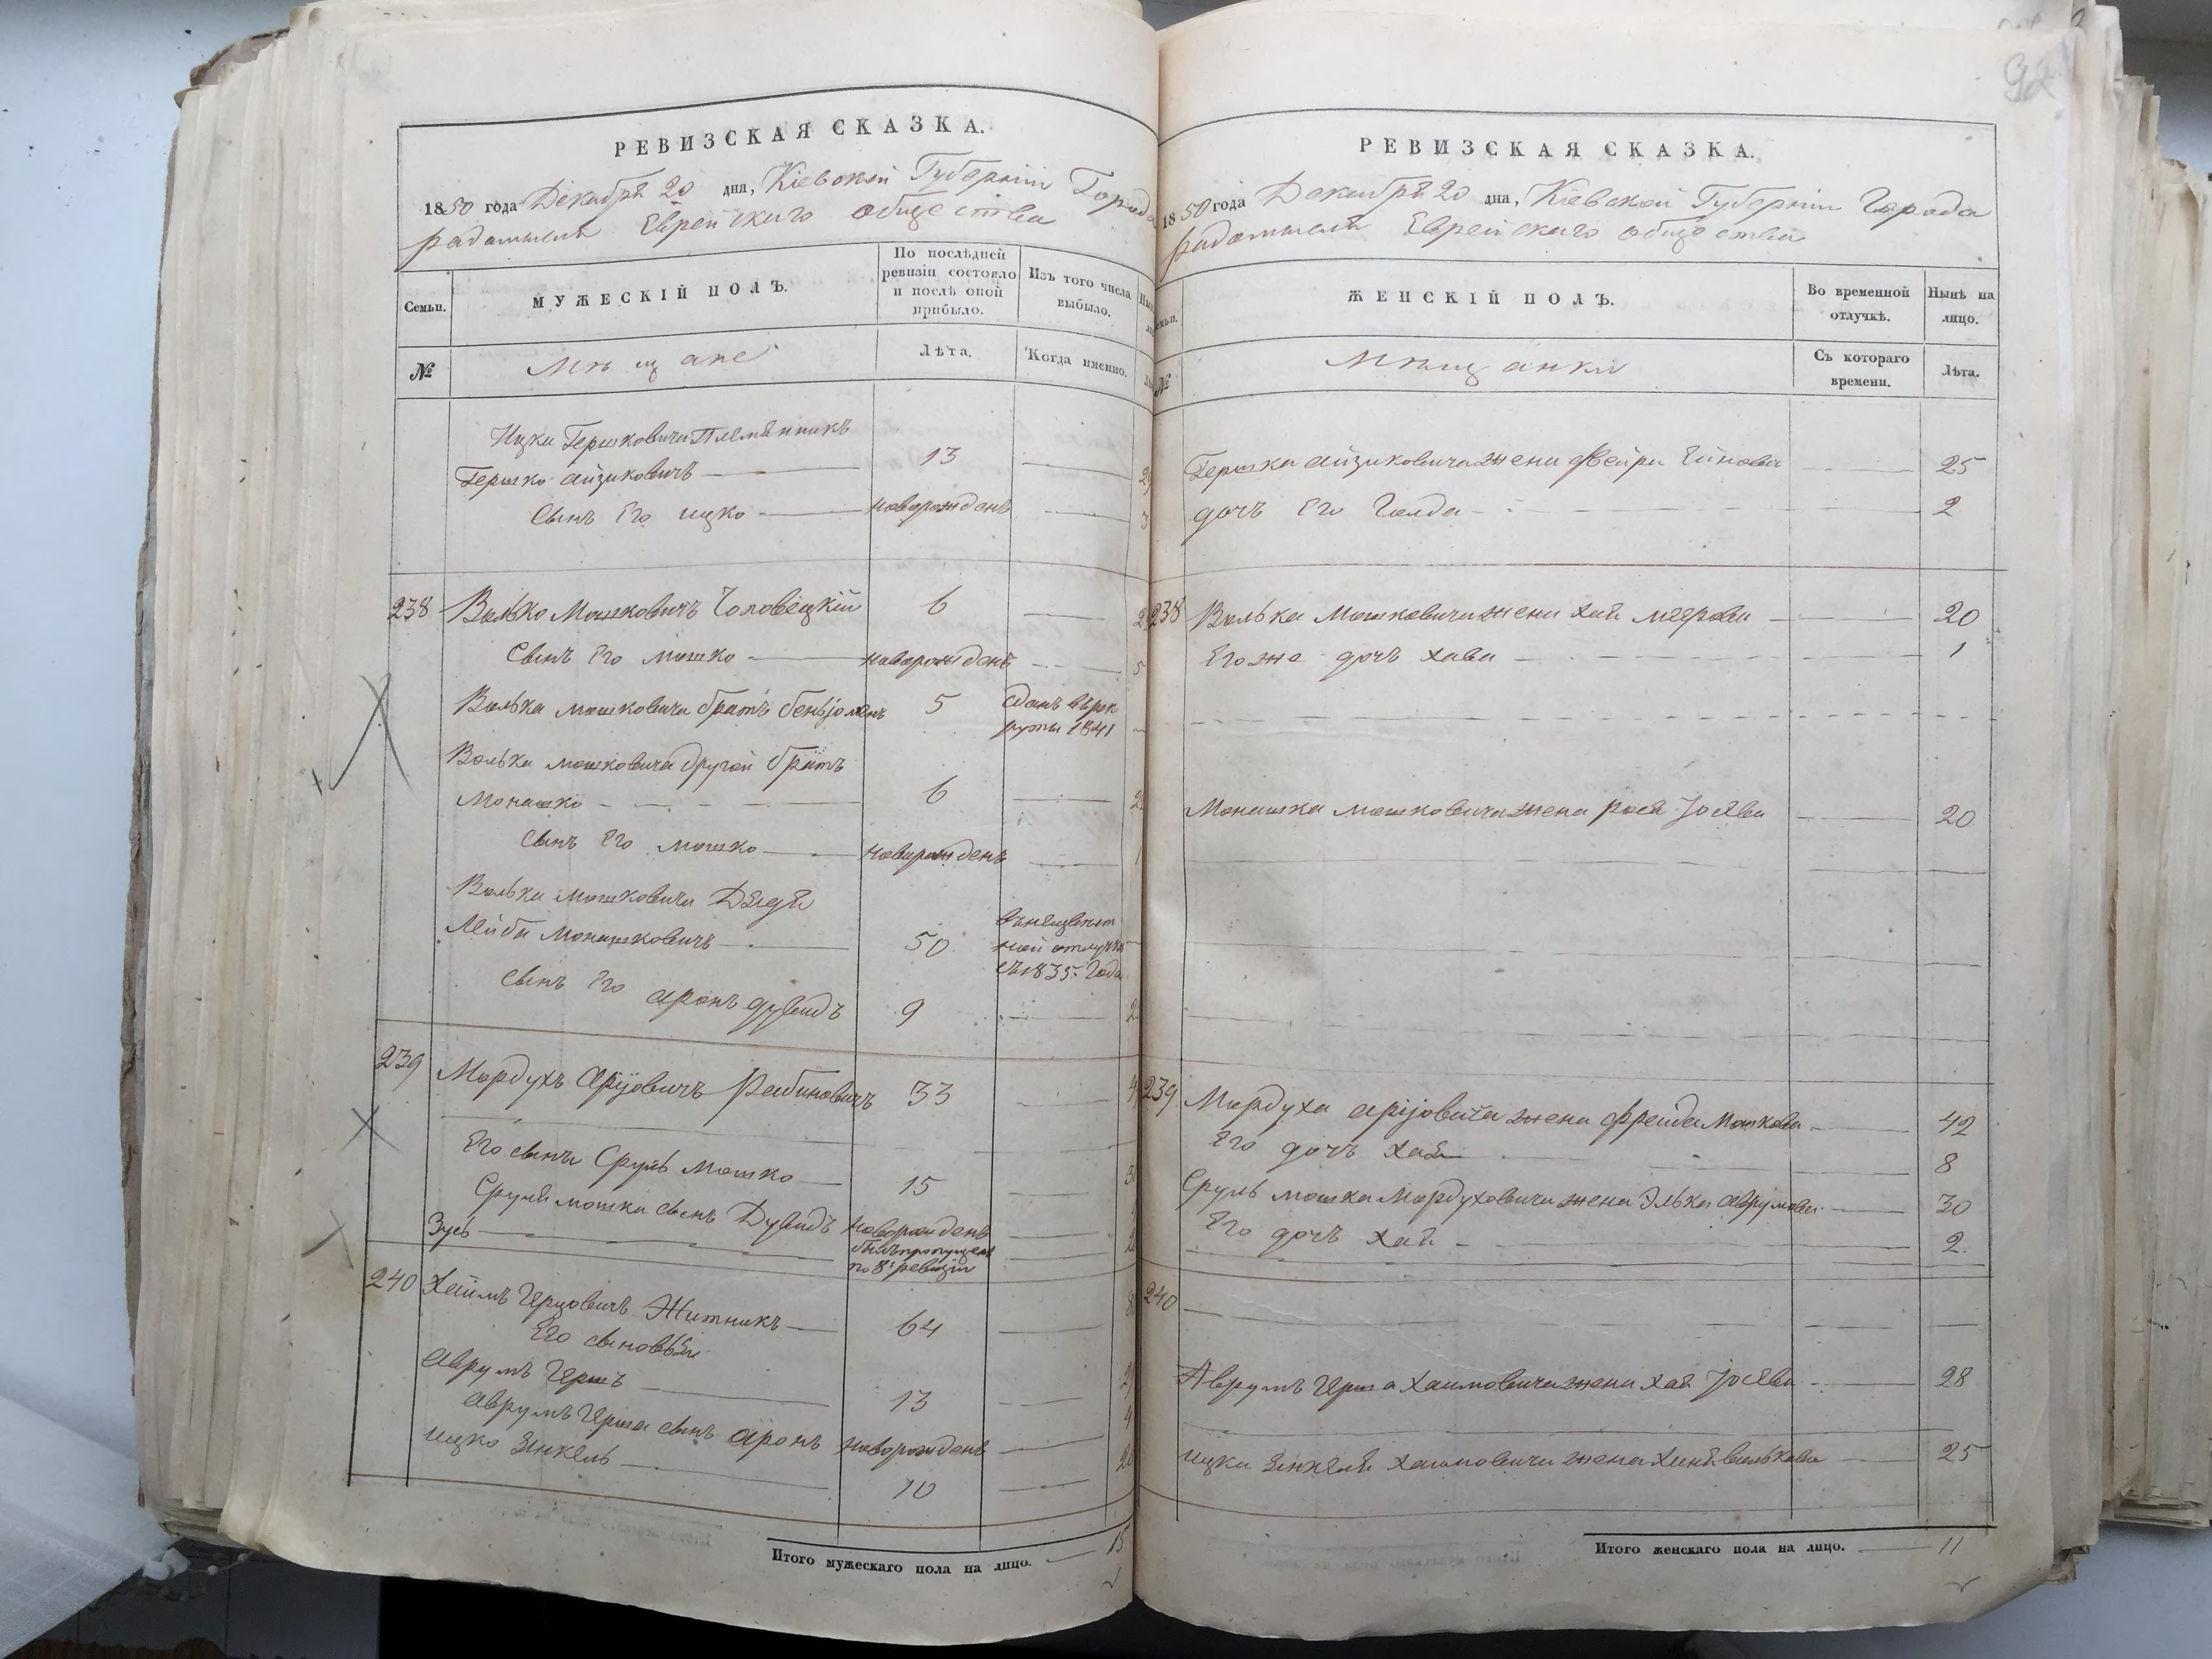 92
РЕВИЗСКАЯ СКАЗКА.
1850 года Декабрѣ 20 дня, Кіевской Губерніи Города
радомысля Еврейскаго общества
Семьи.
МУЖЕСКІЙ ПОЛЪ.
По послѣдней ревизіи состояло и послѣ оной прибыло.
Изъ того числа выбыло.
№
Мѣщане
Лѣта.
Когда именно.
Ицка Гершковича Племянникъ
Гершко Айзиковичъ 13
Сынъ Его ицко новорожденъ 3
238 Волько Мошковичъ Чоповецкій 6
Сынъ Его мошко новорожденъ 5
Волька мошковича братъ беньіоменъ 5 Сданъ въ рек
руты 1841
Волька мошковича другой братъ
Монашко 6
Сынъ Его мошко новорожденъ
Волька мошковича Дядя
Лейба Монашковичъ 50 въ неизвѣст
ной отлучкѣ
съ 1835. Года
Сынъ Его аронъ дувидъ 9
239 Мордухъ Аріовичъ Рабиновичъ 33
Его сынъ Сруль мошко 15
Сруля мошки сынъ Дувидъ новорожденъ
Зусь былъ пропущенъ
по 8й ревизіи
240 Хаимъ Герцовичъ Житникъ 64
Его сыновья
Аврумъ Гершъ 13
Аврумъ Герша сынъ аронъ новорожденъ
ицко Зинкель 10
Итого мужескаго пола на лицо. 15
РЕВИЗСКАЯ СКАЗКА.
1850 года Декабрѣ 20 дня, Кіевской Губерніи Города
радомысля Еврейскаго общества
ЖЕНСКІЙ ПОЛЪ.
Во временной отлучкѣ.
Нынѣ на лицо.
№
Мѣщанки
Съ котораго времени.
Лѣта.
Гершка айзиковича жена 25
дочь Его Голда 2
238 Волька Мошковича жена хая меерова 20
Его же дочь хава 1
Монашка мошковича жена рося Іосева 20
239 Мордуха аріовича жена фрейда Мошкова 42
Его дочь хая 8
Сруль мошка Мордуховича жена Элька аврумова 30
Его дочь хая 2.
240
Аврумъ Герша Хаимовича жена хая Іосева 28
ицка Зинкеля хаимовича жена Хиня волькова 25
Итого женскаго пола на лицо. 11